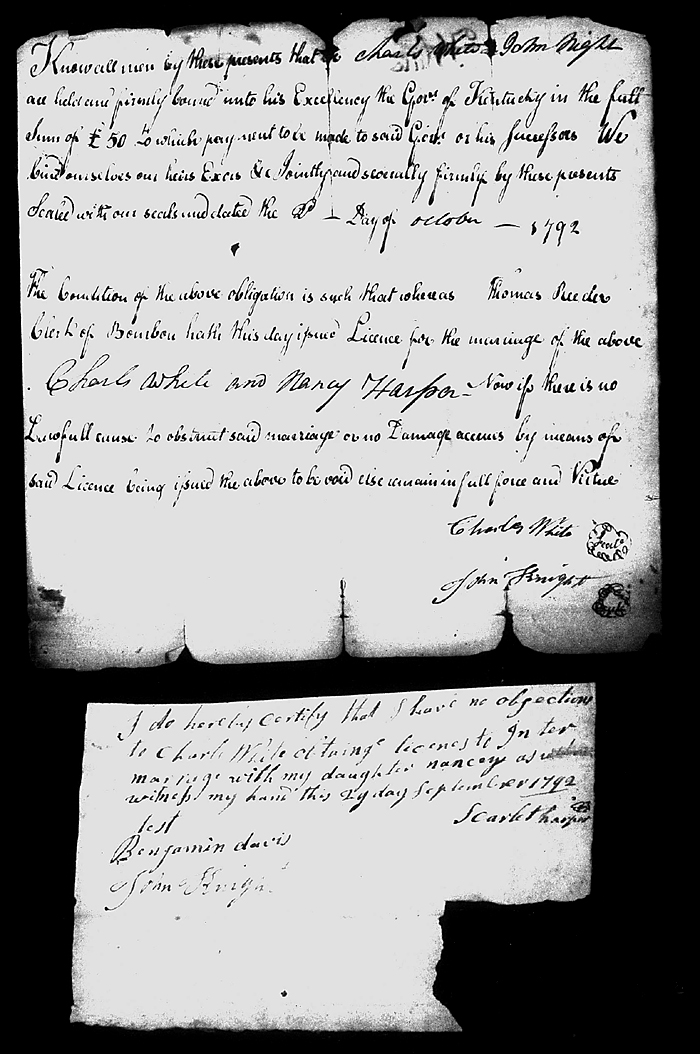 Know all men by these presents that we Charls White & John Night
are held and firmly bound unto his Excellency the Govr. of Kentucky in the full
Sum of £ 50 to which payment to be made to said Govr. or his Successors We
bind ourselves our heirs Excrs &c Jointly and severally firmly by these presents
Sealed with our seals and dated the — Day of october — 1792
The Condition of the above obligation is such that whereas Thomas Reeder
Clerk of Bourbon hath this day issued Licence for the marriage of the above
Charls White and Nancy Harper - Now if there is no
Lawfull cause to obstruct said marriage or no Damage accrues by means of
said Licence being issued the above to be void else remain in full force and Virtue
Charles White Seal
John Knight Seal
I do hereby certify that I have no objections
to Charls White obtaing licenes to In ter
marrage with my daughter nancey as
witness my hand this 29 day September 1792
test Scarlet harper
Benjamin davis
John Knight